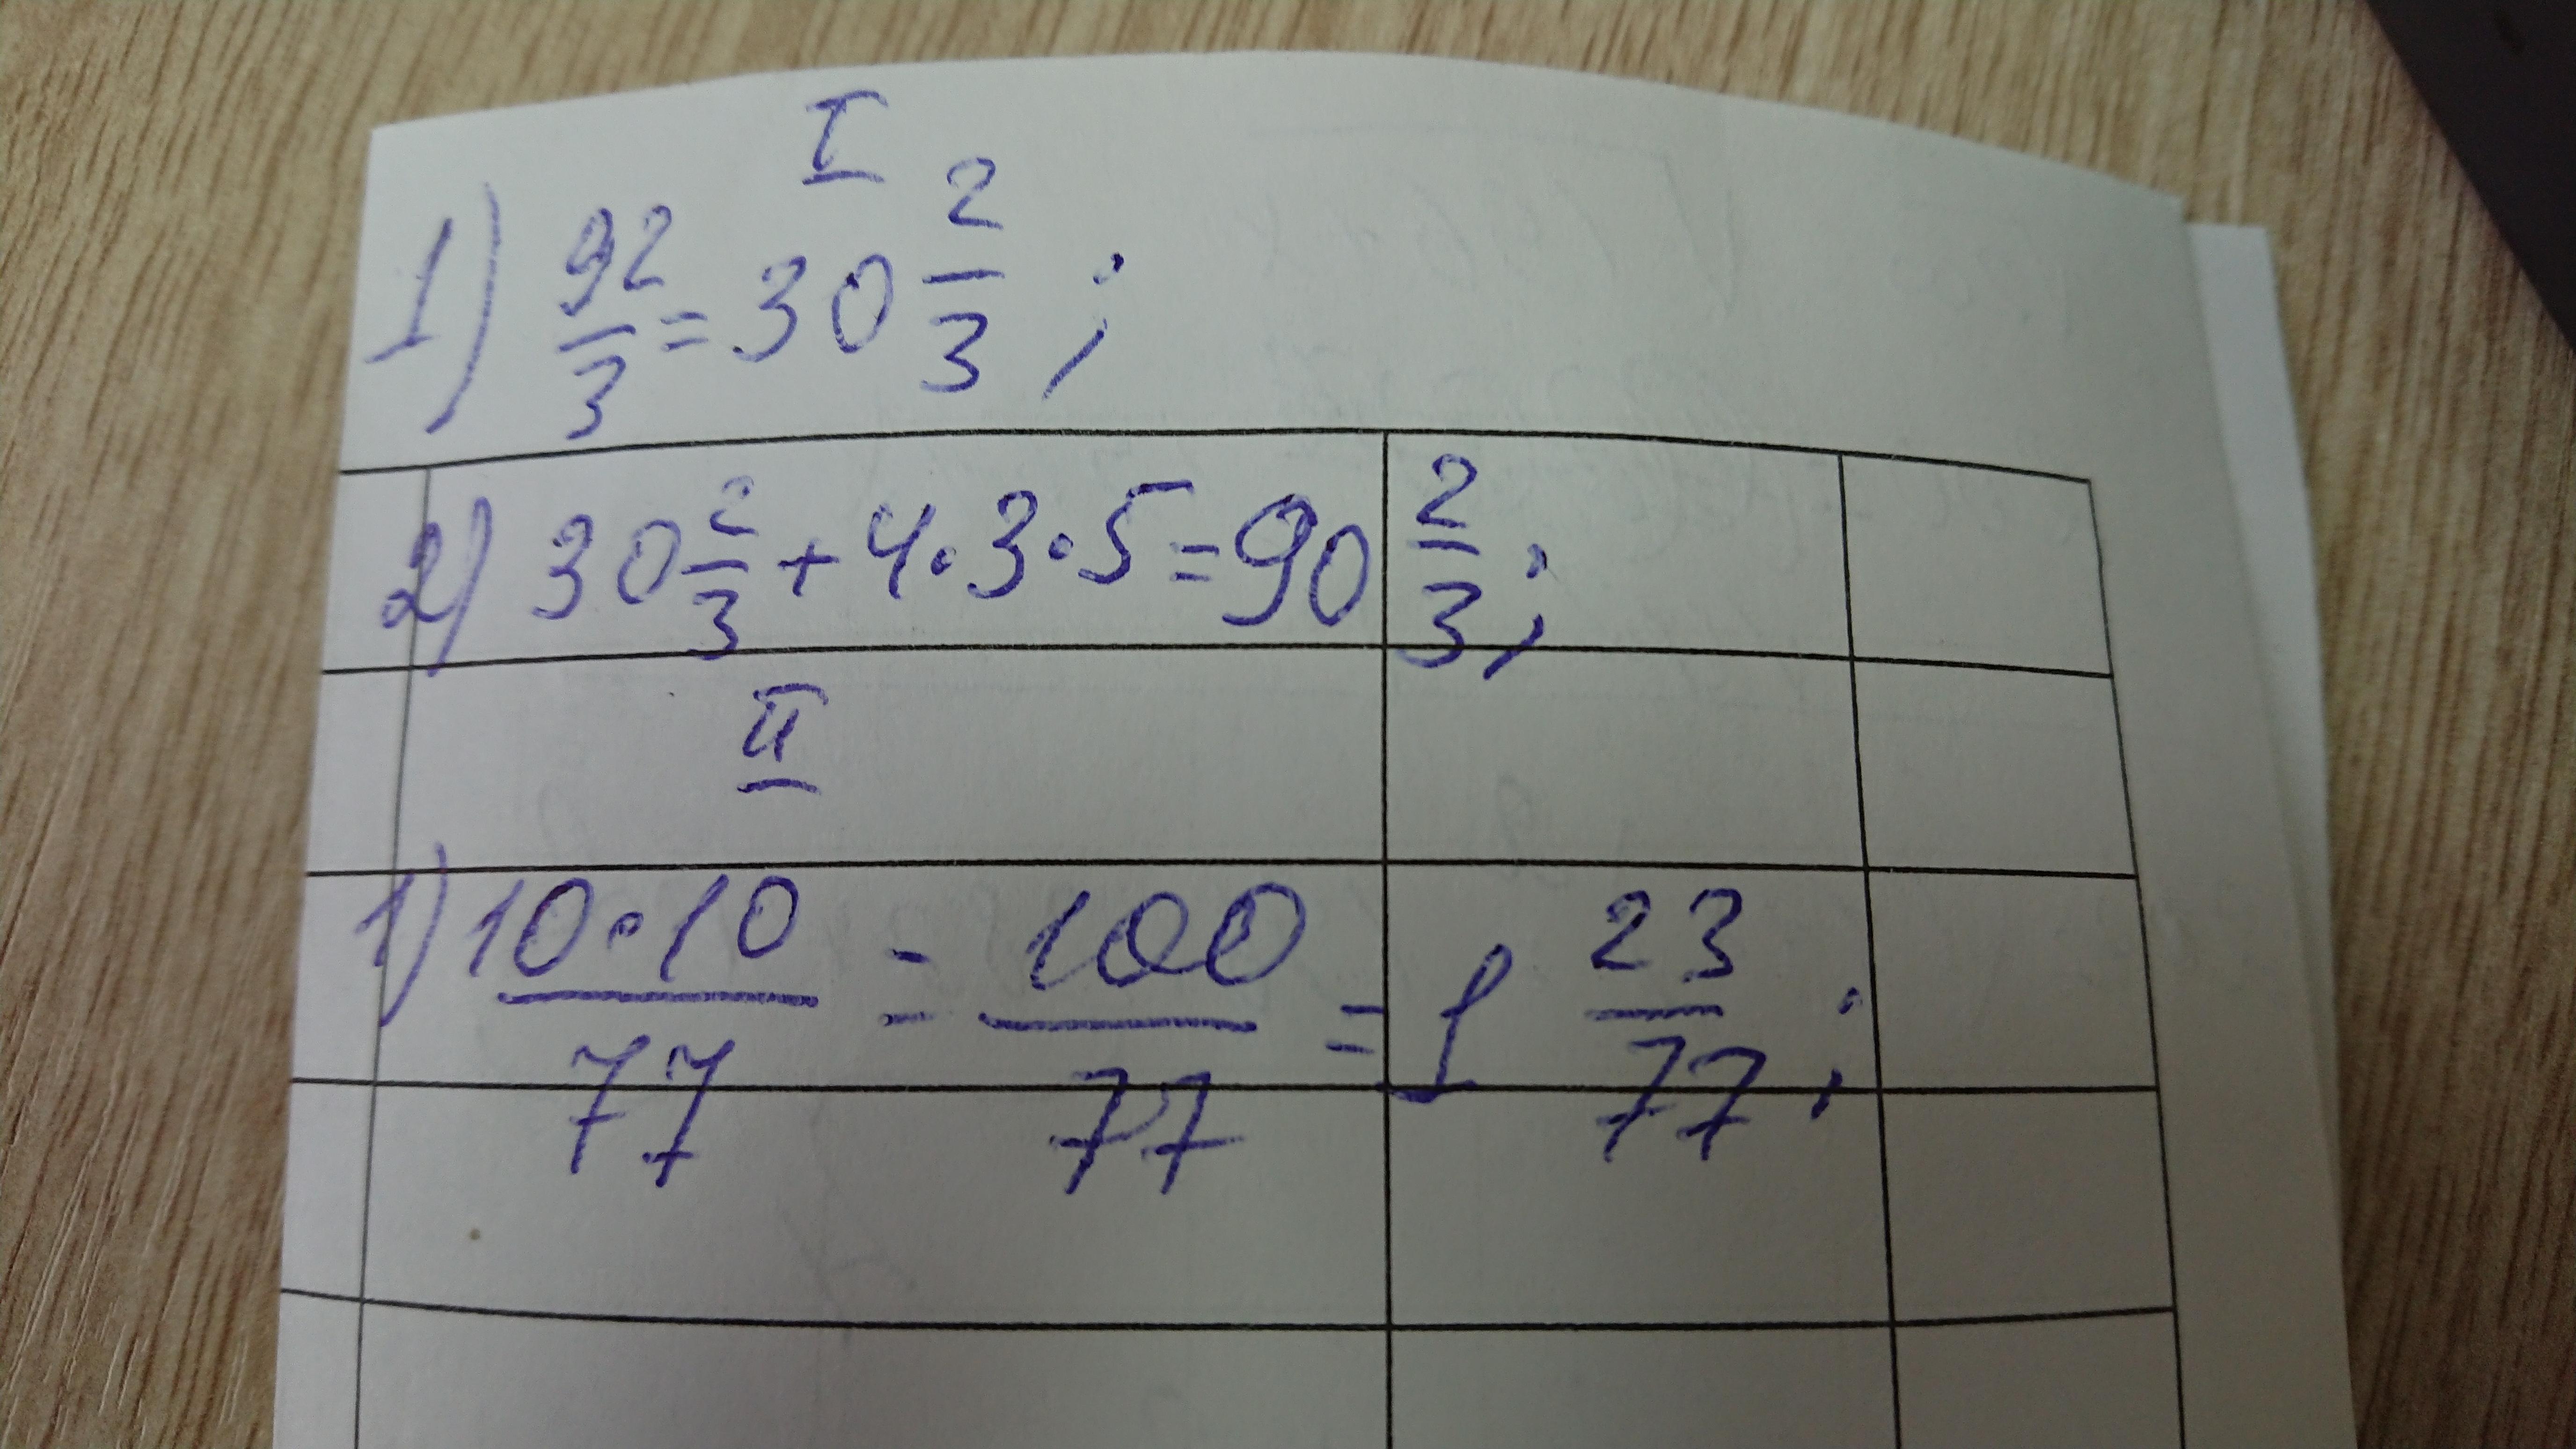 I
1) 92/3 = 30 2/3 ;
2) 30 2/3 + 4 · 3 · 5 = 90 2/3 ;
II
1) 10 · 10 / 77 = 100/77 = 1 23/77 ;